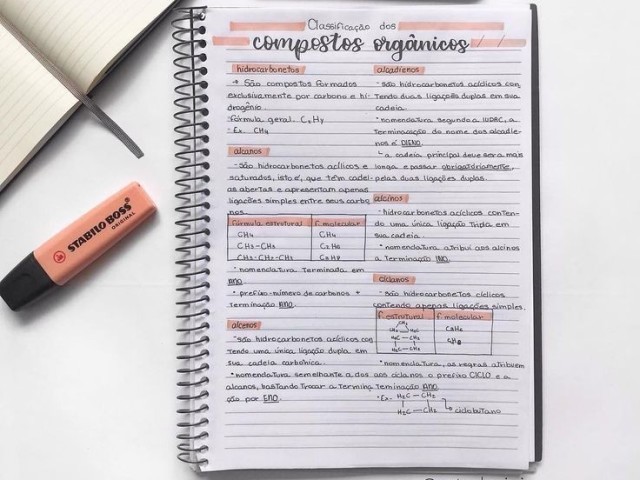 Classificação dos
compostos orgânicos
hidrocarbonetos
→ São compostos formados
exclusivamente por carbono e hi-
drogênio
fórmula geral. CxHy
· Ex. CH4
alcanos
· são hidrocarbonetos acíclicos e
saturados, isto é, que têm cadei-
as abertas e apresentam apenas
ligações simples entre seus carbo
nos
fórmula estrutural f. molecular
CH4 CH4
CH3-CH3 C2H6
CH3-CH2-CH3 C3H8
· nomenclatura terminada em
ANO.
· prefixo-número de carbonos +
terminação ANO.
alcenos
· são hidrocarbonetos acíclicos con
tendo uma única ligação dupla em
sua cadeia carbônica.
· nomenclatura semelhante a dos
alcanos, bastando trocar a termina
ção por ENO.
alcadienos
· são hidrocarbonetos acíclicos con
tendo duas ligações duplas em sua
cadeia.
· nomenclatura segundo a IUPAC, a
terminação do nome dos alcadie-
nos é DIENO.
↳ a cadeia principal deve ser a mais
longa e passar obrigatoriamente,
pelas duas ligações duplas.
alcinos
· hidrocarbonetos acíclicos conten-
do uma única ligação tripla em
sua cadeia.
· nomenclatura atribui aos alcinos
a terminação INO.
ciclanos
· são hidrocarbonetos cíclicos
contendo apenas ligações simples.
f. estrutural f. molecular
CH2 C3H6
CH2-CH2
H2C-CH2 C4H8
H2C-CH2
· nomenclatura, as regras atribuem
aos ciclanos o prefixo CICLO e a
terminação ANO
· Ex. H2C-CH2
H2C-CH2 ↳ ciclobutano
STABILO BOSS
ORIGINAL